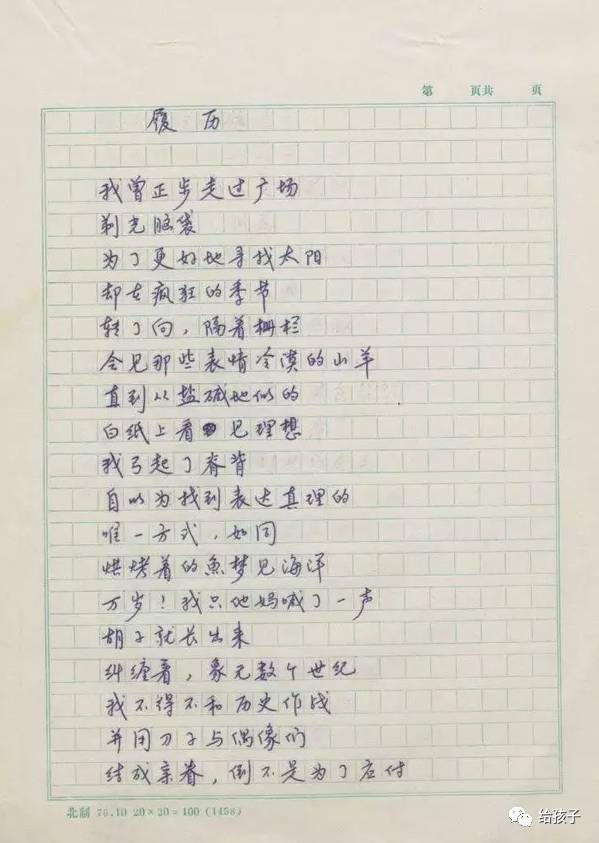 第 页共 页
履历
我曾正步走过广场
剃光脑袋
为了更好地寻找太阳
却在疯狂的季节
转了向，隔着栅栏
会见那些表情冷漠的山羊
直到从盐碱地似的
白纸上看见理想
我弓起了脊背
自以为找到表达真理的
唯一方式，如同
烘烤着的鱼梦见海洋
万岁！我只他妈喊了一声
胡子就长出来
纠缠着，象无数个世纪
我不得不和历史作战
并用刀子与偶像们
结成亲眷，倒不是为了应付
北制 76.10 20×20=400 (1438)
给孩子